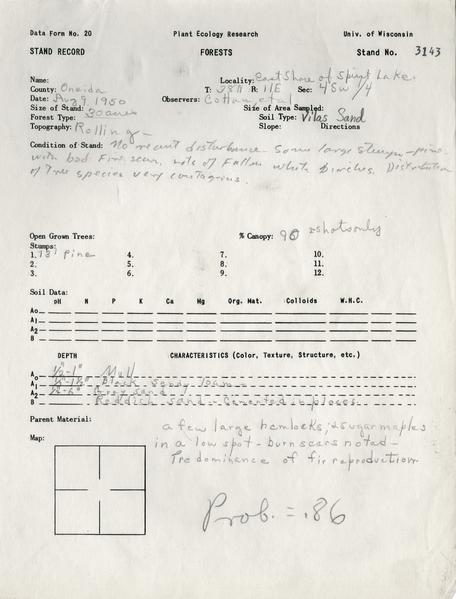 Data Form No. 20 Plant Ecology Research Univ. of Wisconsin
STAND RECORD FORESTS Stand No. 3143
Name: Locality: East Shore of Spirit Lake
County: Oneida T: 38N R: 11E Sec: 4 SW 1/4
Date: Aug 9, 1950 Observers: Cottam, et al
Size of Stand: 30 acres Size of Area Sampled:
Forest Type: Soil Type: Vilas Sand
Topography: Rolling - Slope: Directions
Condition of Stand: No recent disturbance. Some large stumps - pine
with bad fire scar, lots of fallen white birches. Distribution
of tree species very contagious.
Open Grown Trees: % Canopy: 90 shots only
Stumps:
1. 18" Pine 4. 7. 10.
2. 5. 8. 11.
3. 6. 9. 12.
Soil Data:
pH N P K Ca Mg Org. Mat. Colloids W.H.C.
Ao
A1
A2
B
DEPTH CHARACTERISTICS (Color, Texture, Structure, etc.)
Ao 1/2"-1" Mull
A1 Black sandy loam
A2 Grey sand
B Reddish sand - Cemented in places
Parent Material: a few large hemlocks, & sugar maples
Map: in a low spot - burn scars noted -
Predominance of fir reproduction
Prob. = .86